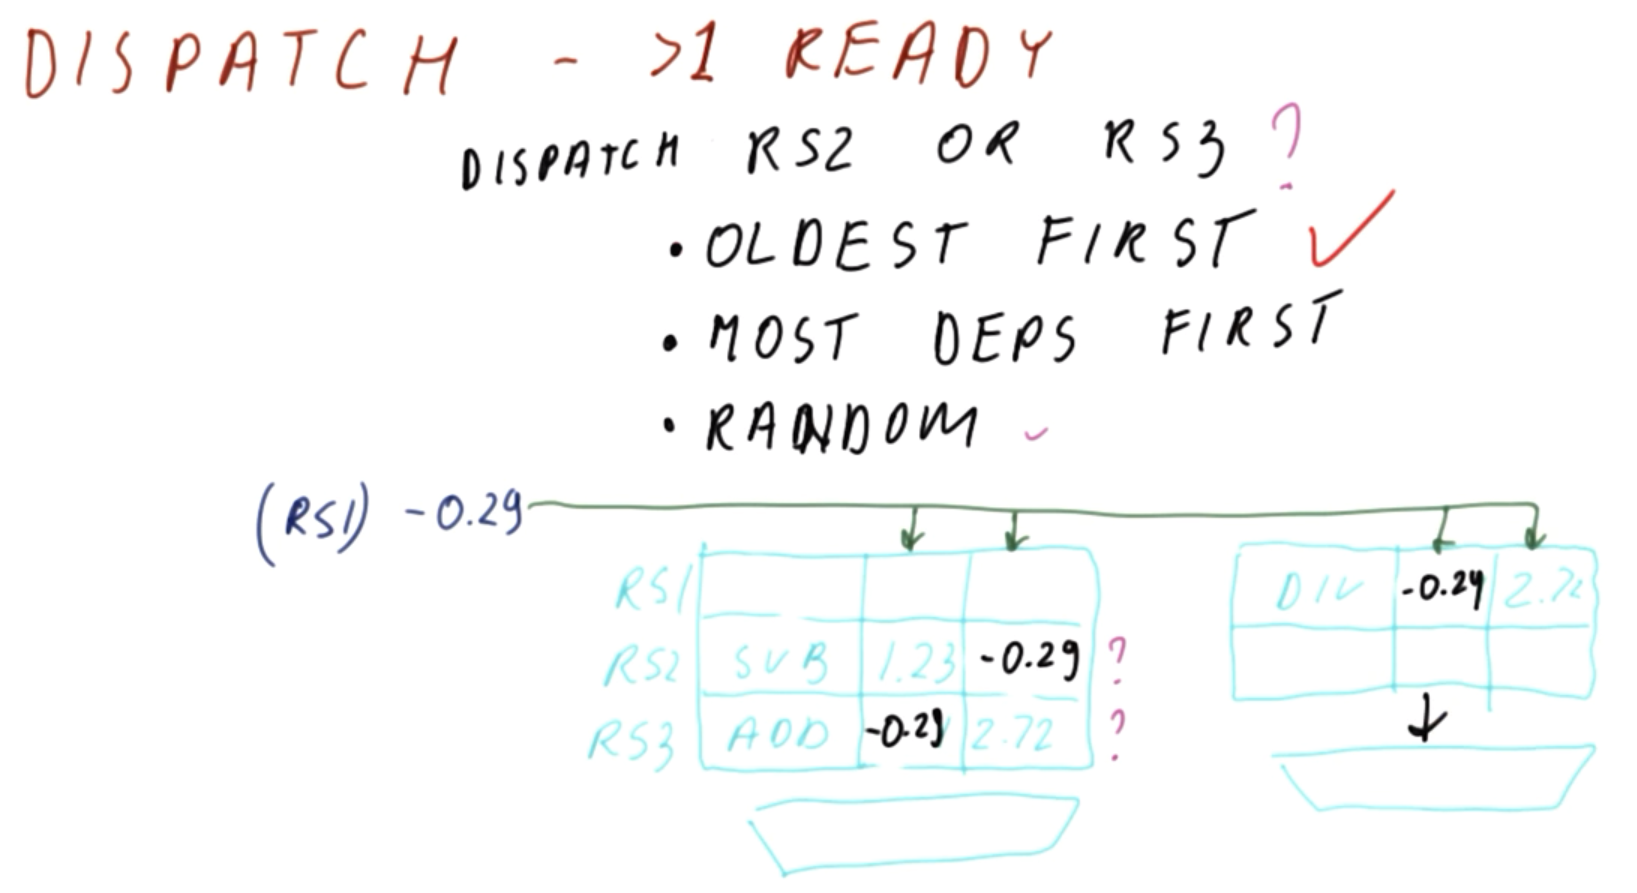 DISPATCH - >1 READY
DISPATCH RS2 OR RS3 ?
• OLDEST FIRST ✓
• MOST DEPS FIRST
• RANDOM
(RS1) -0.29
RS1
DIV -0.29 2.72
RS2 SUB 1.23 -0.29 ?
RS3 ADD -0.29 2.72 ?